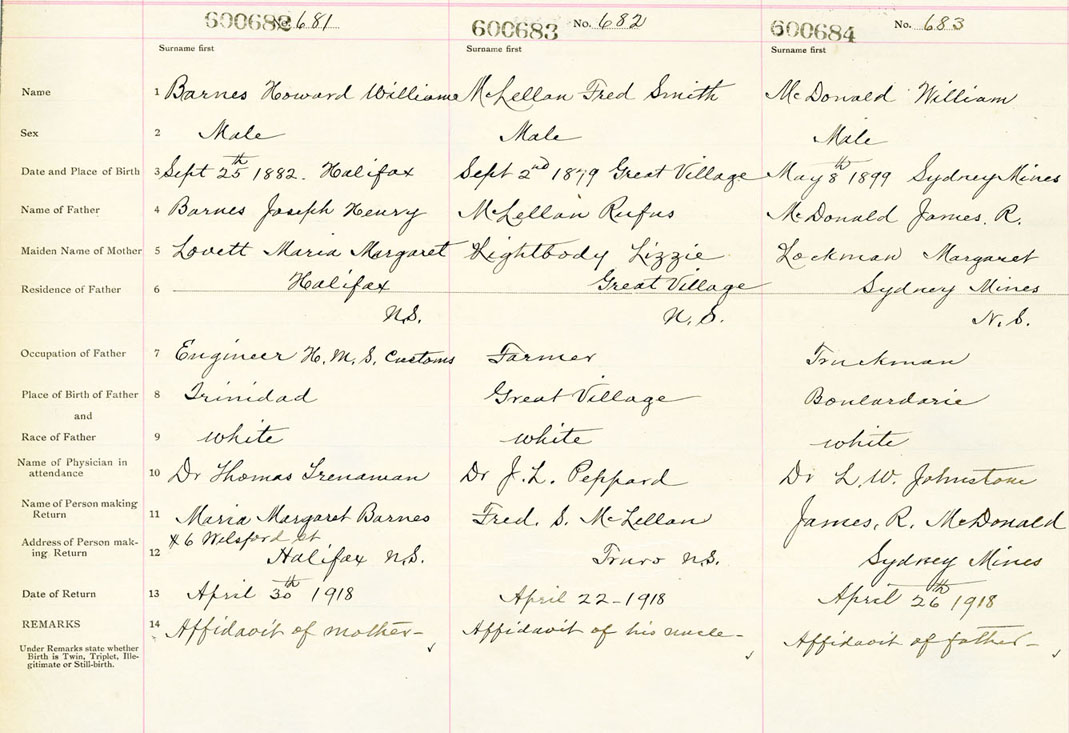 600682 No. 681 600683 No. 682 600684 No. 683
Surname first Surname first Surname first
Name 1 Barnes Howard William McLellan Fred Smith McDonald William
Sex 2 Male Male Male
Date and Place of Birth 3 Sept 25th 1882. Halifax Sept 2nd 1879 Great Village May 8th 1899 Sydney Mines
Name of Father 4 Barnes Joseph Henry McLellan Rufus McDonald James. R.
Maiden Name of Mother 5 Lovett Maria Margaret Lightbody Lizzie Lockman Margaret
Residence of Father 6 Halifax Great Village Sydney Mines
N.S. N.S. N.S.
Occupation of Father 7 Engineer H.M.S. Customs Farmer Truckman
Place of Birth of Father 8 Trinidad Great Village Boulardarie
and
Race of Father 9 white white white
Name of Physician in
attendance 10 Dr Thomas Trenaman Dr J. L. Peppard Dr L. W. Johnstone
Name of Person making
Return 11 Maria Margaret Barnes Fred. S. McLellan James. R. McDonald
Address of Person mak-
ing Return 12 #6 Welsford St
Halifax N.S. Truro N.S. Sydney Mines
Date of Return 13 April 30th 1918 April 22-1918 April 26th 1918
REMARKS 14 Affidavit of mother- Affidavit of his uncle- Affidavit of father-
Under Remarks state whether
Birth is Twin, Triplet, Ille-
gitimate or Still-birth.